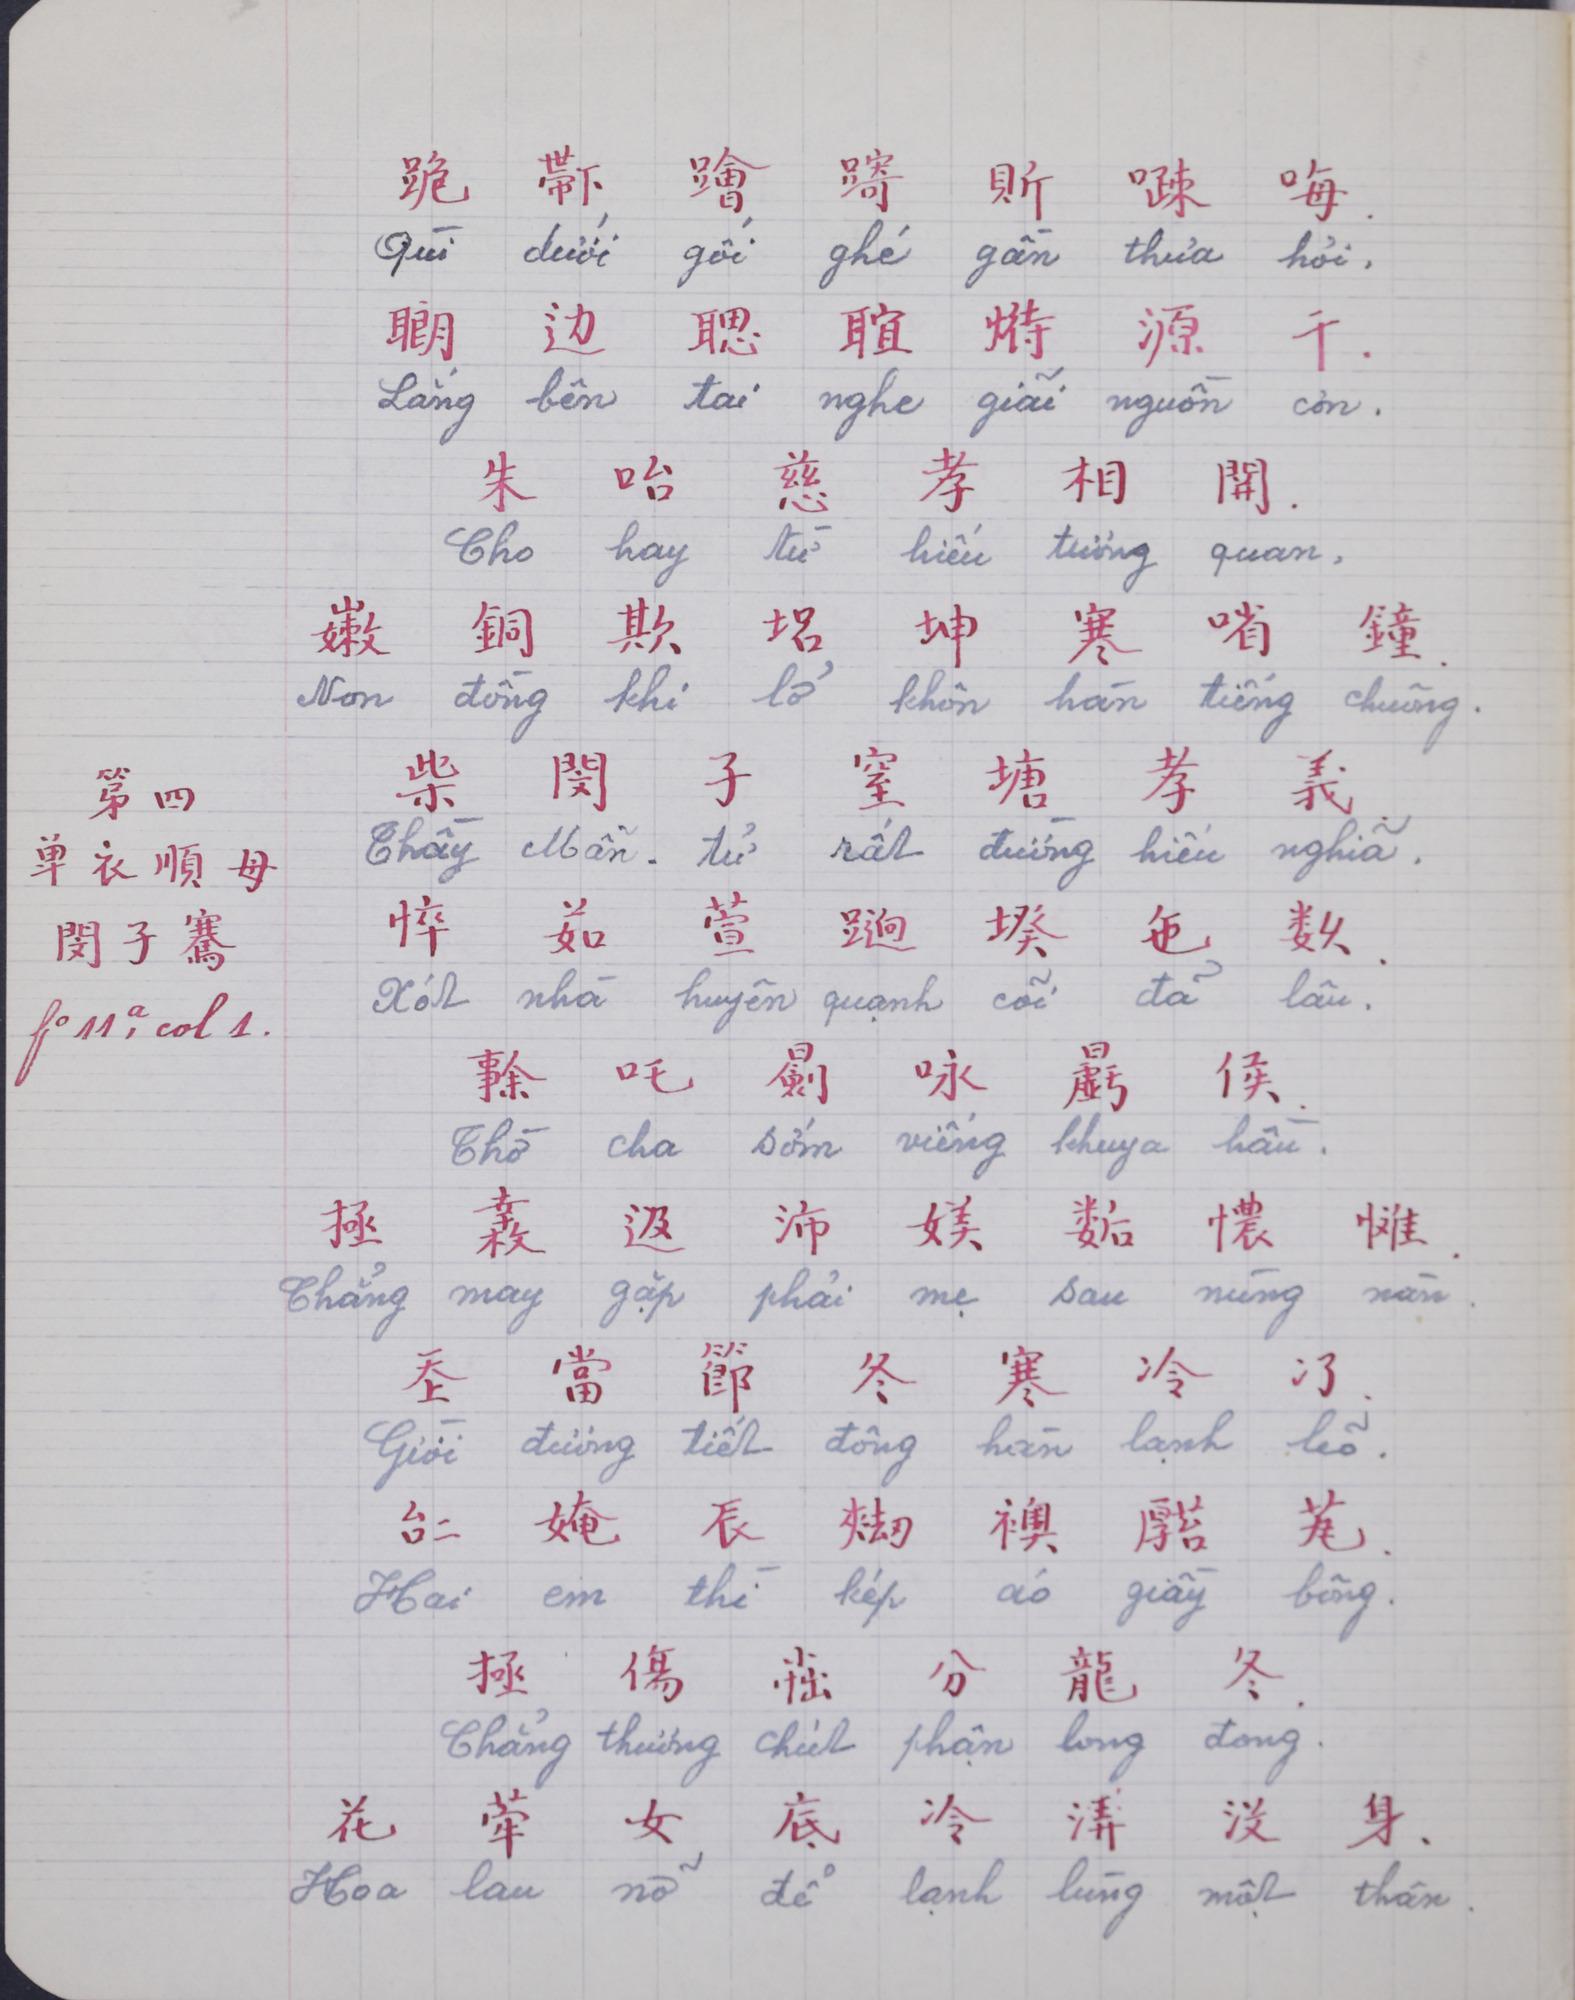 跪 𨑜 𨆝 𨄴 𧵆 𠼲 𠰺.
Quì dưới gối ghé gần thưa hỏi,
𦗏 边 聰 𦖑 𤉒 源 干.
Lắng bên tai nghe giãi nguồn cơn.
朱 咍 慈 孝 相 開.
Cho hay từ hiếu tương quan,
嫩 銅 欺 𡋿 坤 寒 㗂 鐘.
Non đồng khi lở khôn hàn tiếng chuông.
第四
单衣順母
閔子騫
fº 11, a col 1.
柴 閔 子 窒 塘 孝 義.
Thầy Mẫn-tử rất đường hiếu nghĩa,
悴 茹 萱 𨒺 堘 㐌 数.
Xót nhà huyên quạnh cõi đã lâu.
𠄜 吒 𣌋 咏 𣌉 侯.
Thờ cha sớm viếng khuya hầu.
拯 𢆧 返 沛 媄 𡢐 憹 𢤞.
Chẳng may gặp phải mẹ sau nừng nàn.
𡗶 當 節 冬 寒 冷 汈.
Giời đương tiết đông hàn lạnh lẽo.
𠄩 㛪 辰 𥛭 襖 𠫅 芤.
Hai em thì kép áo giầy bông.
拯 傷 𡮇 分 龍 冬.
Chẳng thương chút phận long đong.
花 𦰤 女 底 冷 㳥 没 身.
Hoa lau nỡ để lạnh lùng một thân.